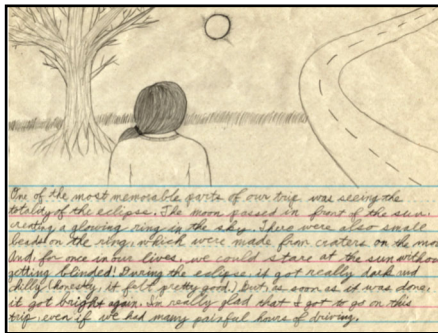 One of the most memorable parts of our trip was seeing the
totality of the eclipse. The moon passed in front of the sun,
creating a glowing ring in the sky. There were also small
beads on the ring, which were made from craters on the moon.
And, for once in our lives, we could stare at the sun without
getting blinded! During the eclipse, it got really dark and
chilly (honestly, it felt pretty good) but as soon as it was done,
it got bright again. I'm really glad that I got to go on this
trip, even if we had many painful hours of driving.